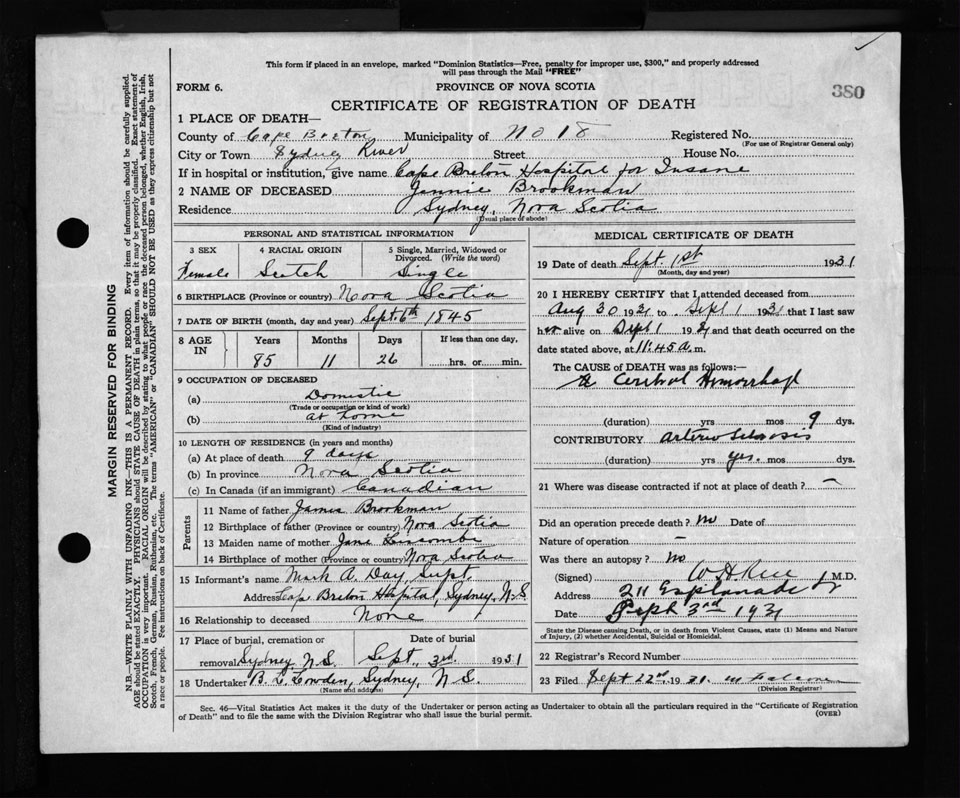 This form if placed in an envelope, marked "Dominion Statistics—Free, penalty for improper use, $300," and properly addressed
will pass through the Mail "FREE"
380
FORM 6.
PROVINCE OF NOVA SCOTIA
CERTIFICATE OF REGISTRATION OF DEATH
1 PLACE OF DEATH—
County of Cape Breton Municipality of No 18 Registered No.
(For use of Registrar General only)
City or Town Sydney River Street House No.
If in hospital or institution, give name Cape Breton Hospital for Insane
2 NAME OF DECEASED Jennie Brookman
Residence Sydney, Nova Scotia
(Usual place of abode)
PERSONAL AND STATISTICAL INFORMATION
3 SEX 4 RACIAL ORIGIN 5 Single, Married, Widowed or Divorced. (Write the word)
Female Scotch Single
6 BIRTHPLACE (Province or country) Nova Scotia
7 DATE OF BIRTH (month, day and year) Sept. 6th 1845
8 AGE IN Years Months Days If less than one day,
85 11 26 hrs. or min.
9 OCCUPATION OF DECEASED
(a) Domestic
(Trade or occupation or kind of work)
(b) at home
(Kind of industry)
10 LENGTH OF RESIDENCE (in years and months)
(a) At place of death 9 days
(b) In province Nova Scotia
(c) In Canada (if an immigrant) Canadian
Parents
11 Name of father James Brookman
12 Birthplace of father (Province or country) Nova Scotia
13 Maiden name of mother Jane
14 Birthplace of mother (Province or country) Nova Scotia
15 Informant's name Mark A. Day, Supt.
Address Cape Breton Hospital, Sydney, N.S.
16 Relationship to deceased None
17 Place of burial, cremation or removal Sydney, N.S. Date of burial Sept. 3rd. 1931
18 Undertaker Sydney, N.S.
(Name and address)
MEDICAL CERTIFICATE OF DEATH
19 Date of death Sept. 1st 1931
(Month, day and year)
20 I HEREBY CERTIFY that I attended deceased from
Aug 30 1931 to Sept 1 1931 that I last saw
her alive on Sept 1 1931 and that death occurred on the
date stated above, at 11:45 a.m.
The CAUSE OF DEATH was as follows:—
Cerebral Hemorrhage
(duration) yrs mos 9 dys.
CONTRIBUTORY Arterio Sclerosis
(duration) yrs yrs. mos dys.
21 Where was disease contracted if not at place of death? —
Did an operation precede death? No Date of
Nature of operation —
Was there an autopsy? No
(Signed) M.D.
Address 211 Esplanade
Date Sept 3rd 1931
State the Disease causing Death, or in death from Violent Causes, state (1) Means and Nature
of Injury, (2) whether Accidental, Suicidal or Homicidal.
22 Registrar's Record Number
23 Filed Sept 22nd 1931
(Division Registrar)
Sec. 46—Vital Statistics Act makes it the duty of the Undertaker or person acting as Undertaker to obtain all the particulars required in the "Certificate of Registration
of Death" and to file the same with the Division Registrar who shall issue the burial permit.
(OVER)
MARGIN RESERVED FOR BINDING
N.B.—WRITE PLAINLY WITH UNFADING INK—THIS IS A PERMANENT RECORD. Every item of information should be carefully supplied.
AGE should be stated EXACTLY. PHYSICIANS should STATE CAUSE OF DEATH in plain terms, so that it may be properly classified. Exact statement of
OCCUPATION is very important. RACIAL ORIGIN will be described by stating to what people or race the deceased person belonged, whether English, Irish,
Scotch, French, German, Russian, Ruthenian, etc. The terms "AMERICAN" or "CANADIAN" SHOULD NOT BE USED as they express citizenship but not
a race or people. Fee instructions on back of Certificate.